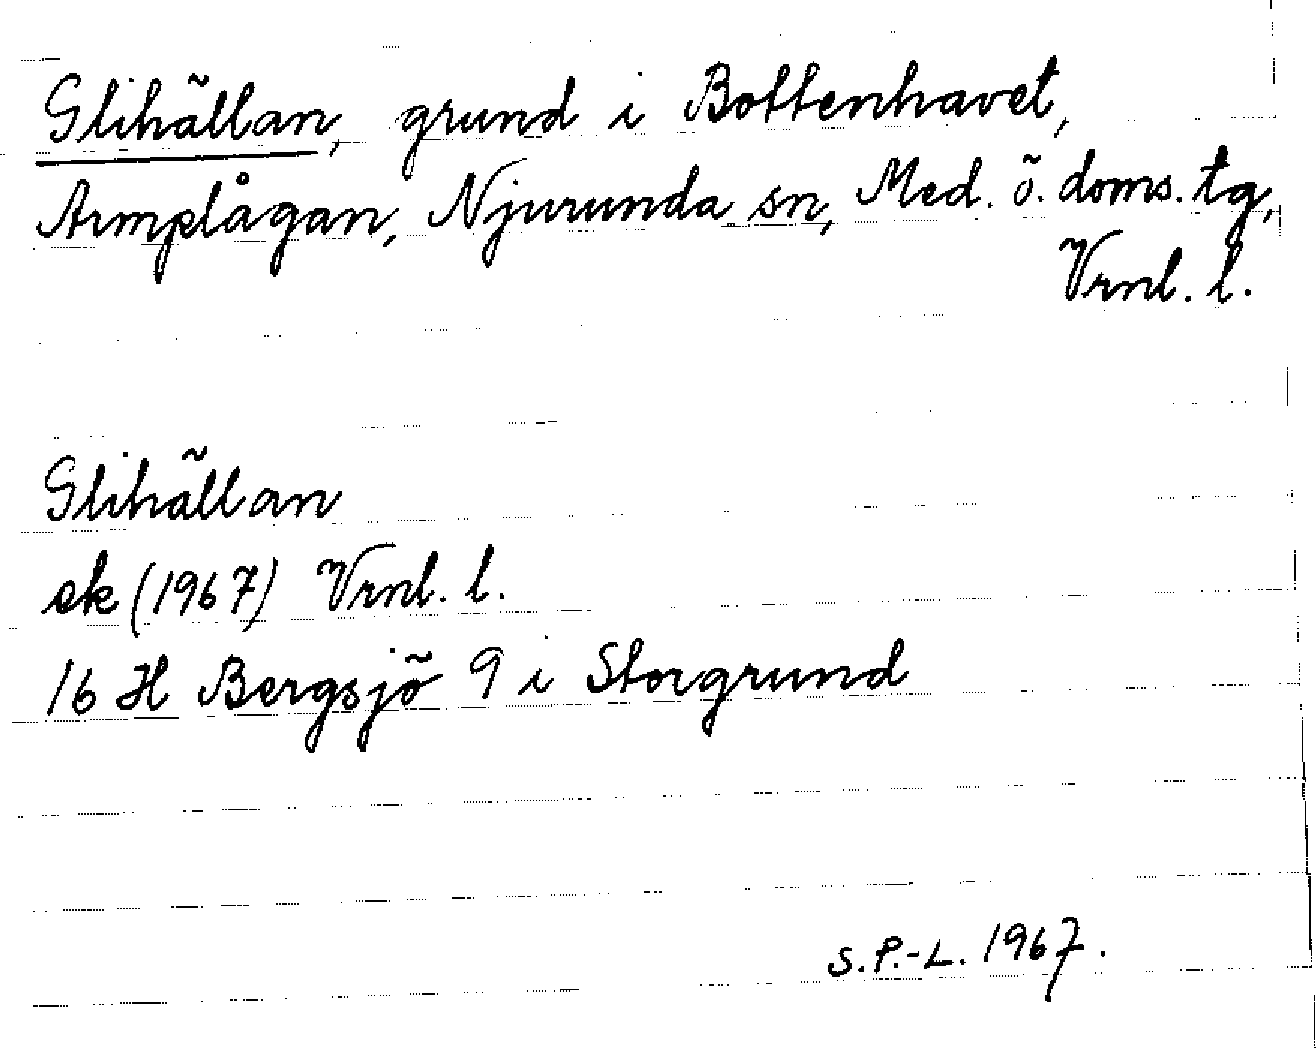 Glihällan, grund i Bottenhavet,
Armplågan, Njurunda sn, Med. ö. doms. tg,
Vrnl. l.
Glihällan
ek (1967) Vrnl. l.
16 H Bergsjö 9 i Storgrund
S.P.-L. 1967.